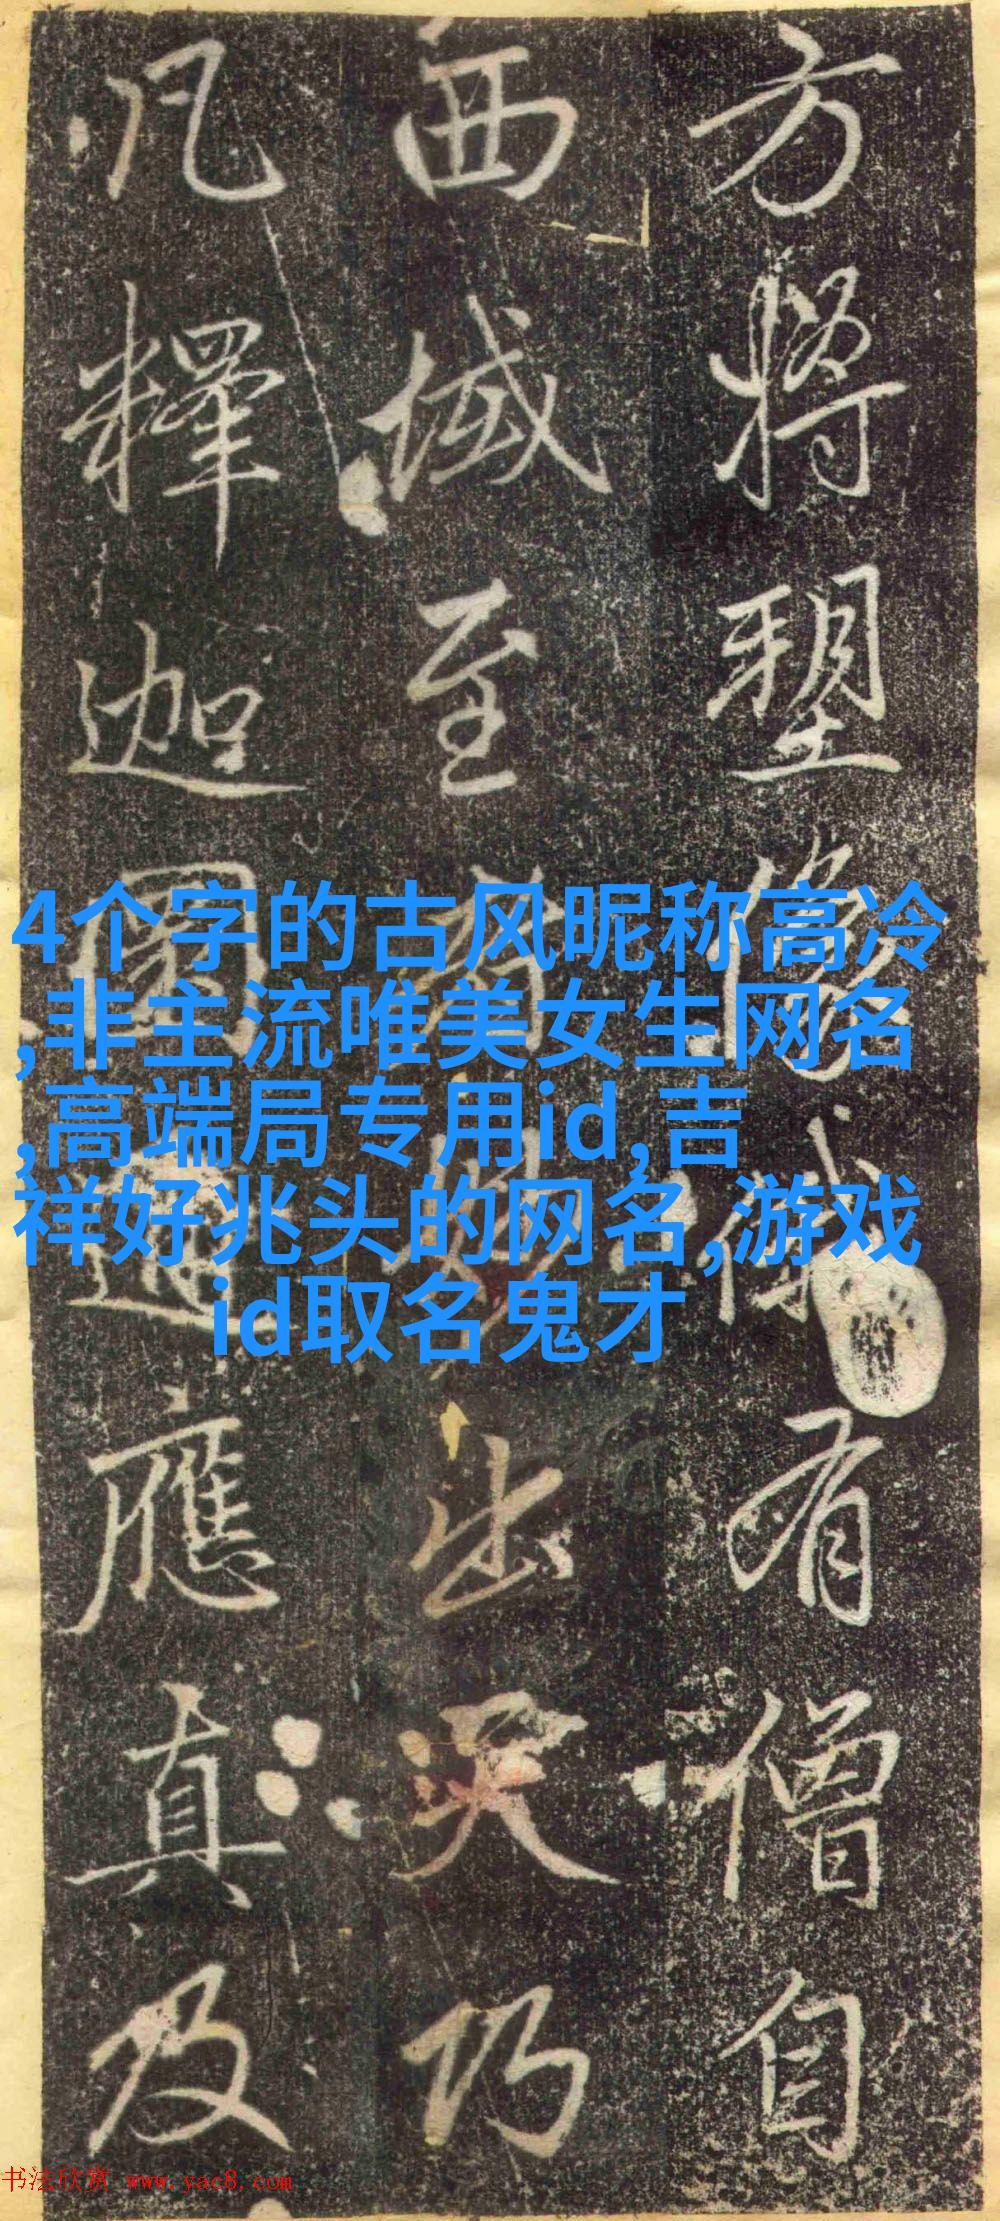 方將塑像俄有僧自
西域至出天
凡釋迦圓通應真及
4个字的古风昵称高冷
,非主流唯美女生网名
,高端局专用id,吉
祥好兆头的网名,游戏
id取名鬼才
书法欣赏 www.yac8.com